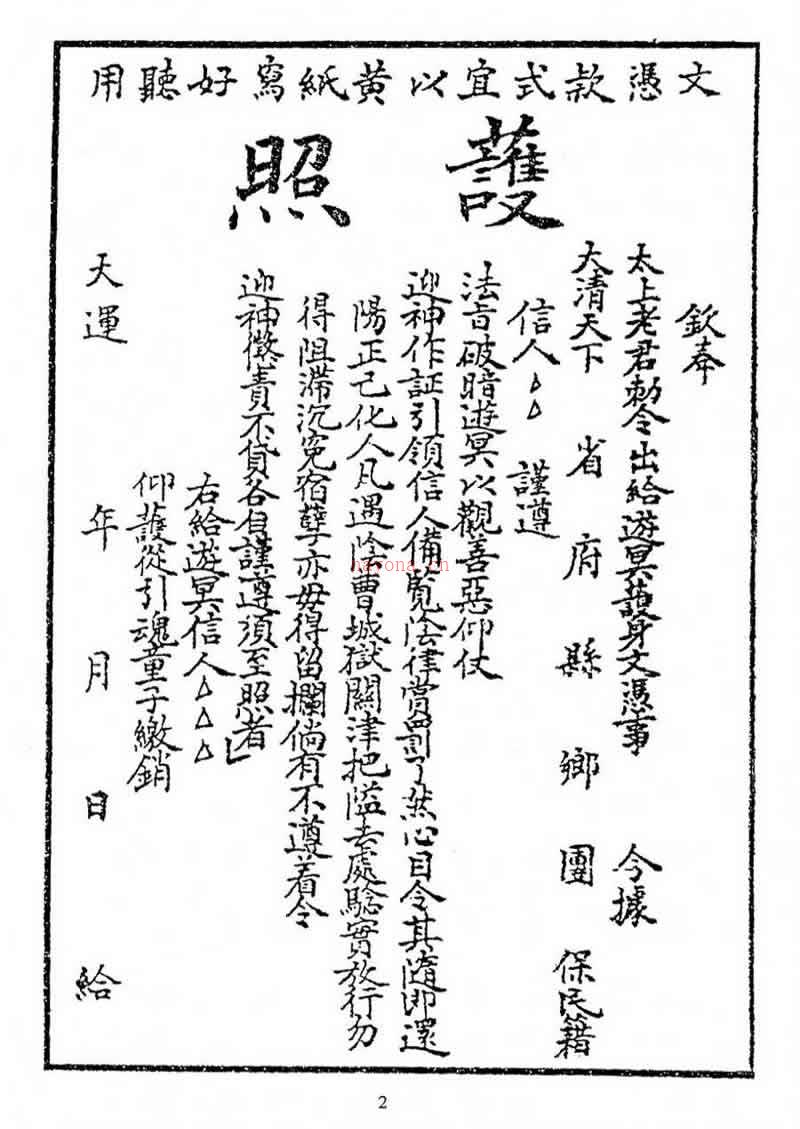 文憑款式宜以黃紙寫好聽用
護照
欽奉
太上老君勅令出給遊冥護身文憑事 今據
大清天下 省 府 縣 鄉 團 保民籍
信人△△ 謹遵
法旨破暗遊冥以觀善惡仰仗
迎神作証引領信人備覽陰律賞罰了然心目令其隨即還
陽正己化人凡遇陰曹城獄關津把隘去處驗實放行勿
得阻滯沉冤宿孽亦毋得留攔倘有不遵着令
迎神懲責不貸各自謹遵須至照者
右給遊冥信人△△△
仰護從引魂童子繳銷
天運 年 月 日 給
nayona.cn
2